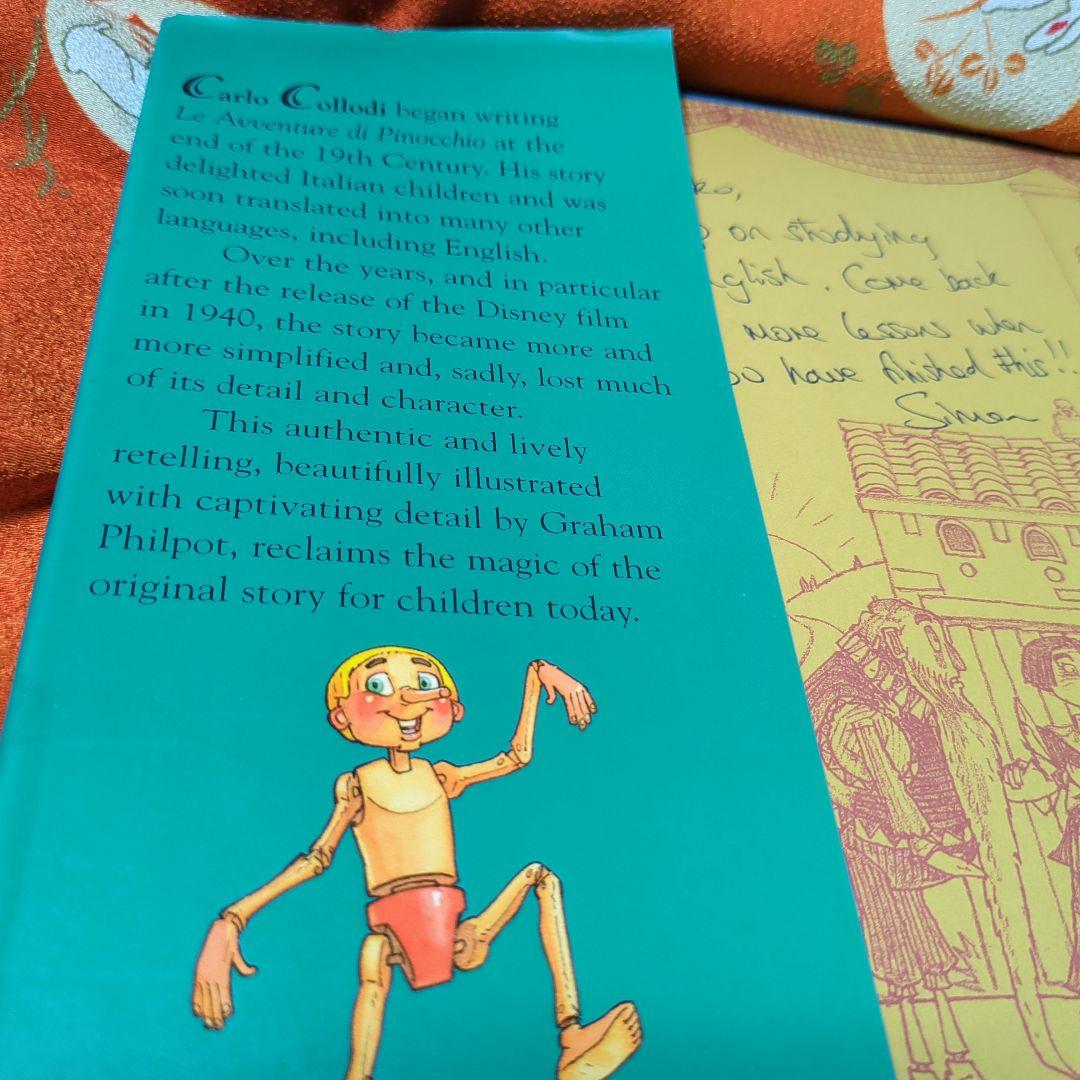 Carlo Collodi began writing
Le Avventure di Pinocchio at the
end of the 19th Century. His story
delighted Italian children and was
soon translated into many other
languages, including English.
Over the years, and in particular
after the release of the Disney film
in 1940, the story became more and
more simplified and, sadly, lost much
of its detail and character.
This authentic and lively
retelling, beautifully illustrated
with captivating detail by Graham
Philpot, reclaims the magic of the
original story for children today.
on studying
glish. Come back
more lessons when
have finished this!!
Simon